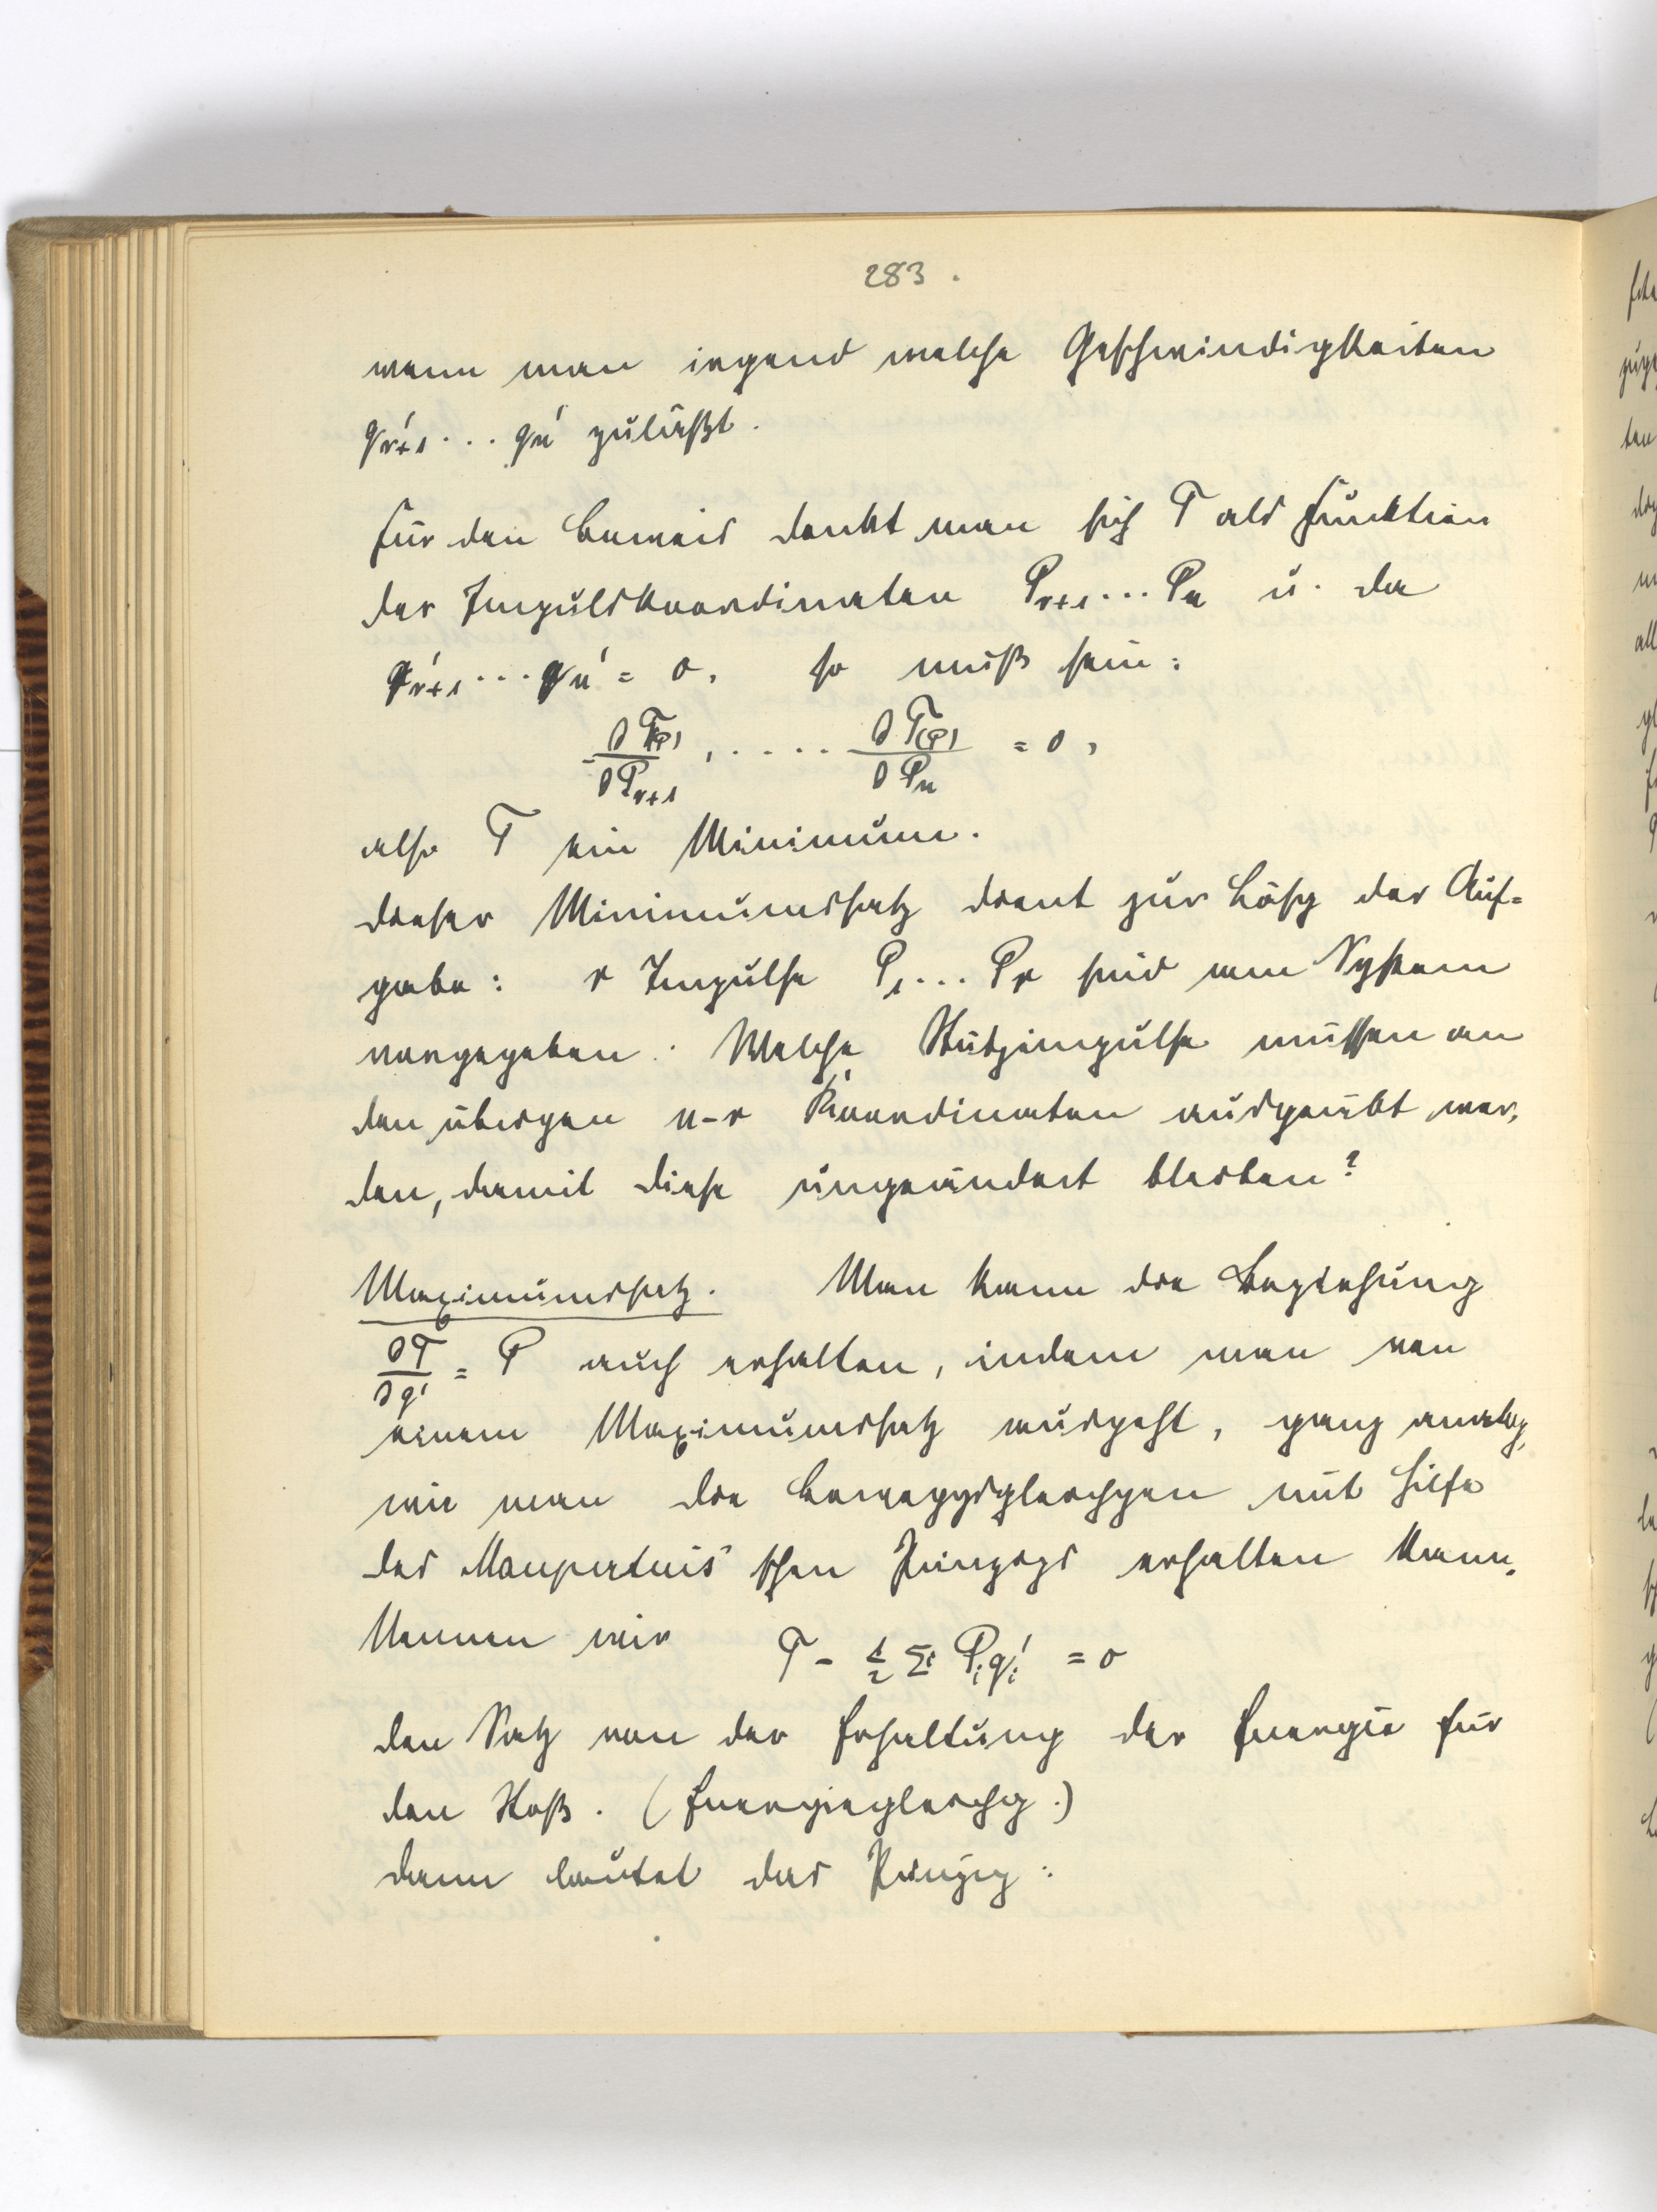 283.
wenn man irgend welche Geschwindigkeiten
q'ᵣ₊₁ ... qₙ' zuläßt.
Für den Beweis denkt man sich T als Funktion
der Impulskoordinaten Pᵣ₊₁ ... Pₙ u. da
q'ᵣ₊₁ ... qₙ' = 0, so muß sein:
∂T(P)/∂Pᵣ₊₁, ..... ∂T(P)/∂Pₙ = 0,
also T ein Minimum.
Dieser Minimumssatz dient zur Lösg der Auf=
gabe: r Impulse P₁ ... Pᵣ sind am System
vorgegeben. Welche Stützimpulse müssen an
den übrigen n-r Koordinaten ausgeübt wer-
den, damit diese ungeändert bleiben?
Maximumssatz. Man kann die Beziehung
∂T/∂q' = P auch erhalten, indem man von
einem Maximumssatz ausgeht, ganz analog,
wie man die Bewegungsgleichgen mit Hilfe
des Maupertuis'schen Prinzips erhalten kann.
Nennen wir T - ½ Σ Pᵢqᵢ' = 0
den Satz von der Erhaltung der Energie für
den Stoß. (Energiegleichg.)
Dann lautet das Prinzip: